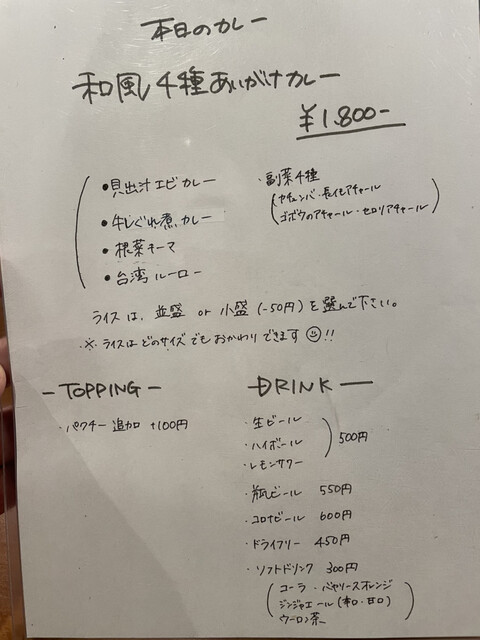 本日のカレー
和風4種あいがけカレー
¥1,800-
・貝出汁エビカレー
・牛しぐれ煮カレー
・根菜キーマ
・台湾ルーロー
・副菜4種
(カチュンバ・長イモアチャール
ゴボウのアチャール・セロリアチャール)
ライスは、並盛 or 小盛(-50円)を選んで下さい。
※ライスはどのサイズでもおかわりできます☺!!
-TOPPING-
・パクチー追加 +100円
-DRINK-
・生ビール
・ハイボール
・レモンサワー
500円
・瓶ビール 550円
・コロナビール 600円
・ドライフリー 450円
・ソフトドリンク 300円
(コーラ・バヤリースオレンジ
ジンジャエール(辛口・甘口)
ウーロン茶)